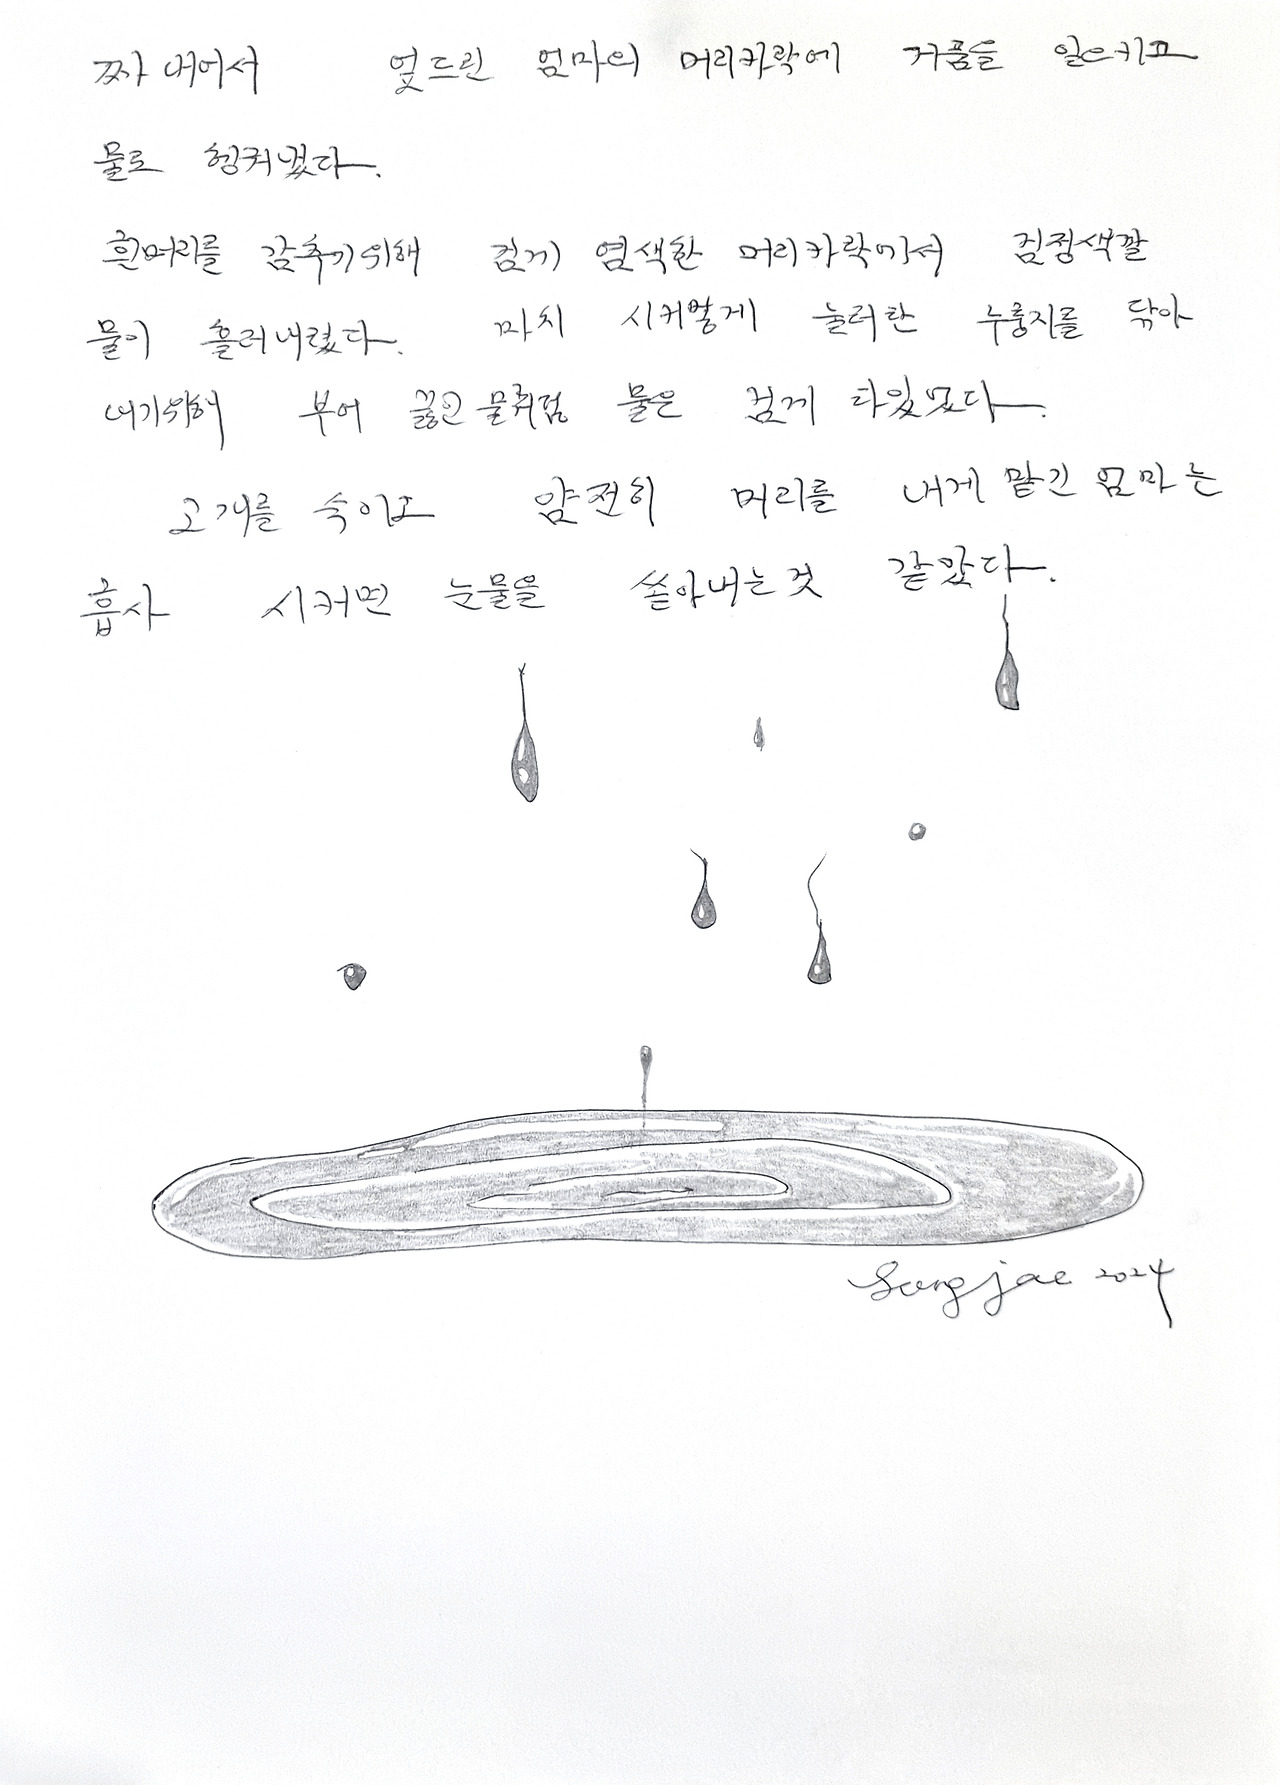 짜내어서 엎드린 엄마의 머리카락에 거품을 일으키고
물로 헹궈냈다.
흰머리를 감추기위해 검게 염색한 머리카락에서 검정색깔
물이 흘러내렸다. 마치 시커멓게 눌러한 누룽지를 닦아
내기위해 부어 끓인 물처럼 물은 검게 타있었다.
고개를 숙이고 얌전히 머리를 내게 맡긴 엄마는
흡사 시커먼 눈물을 쏟아내는것 같았다.
Sungjae 2024